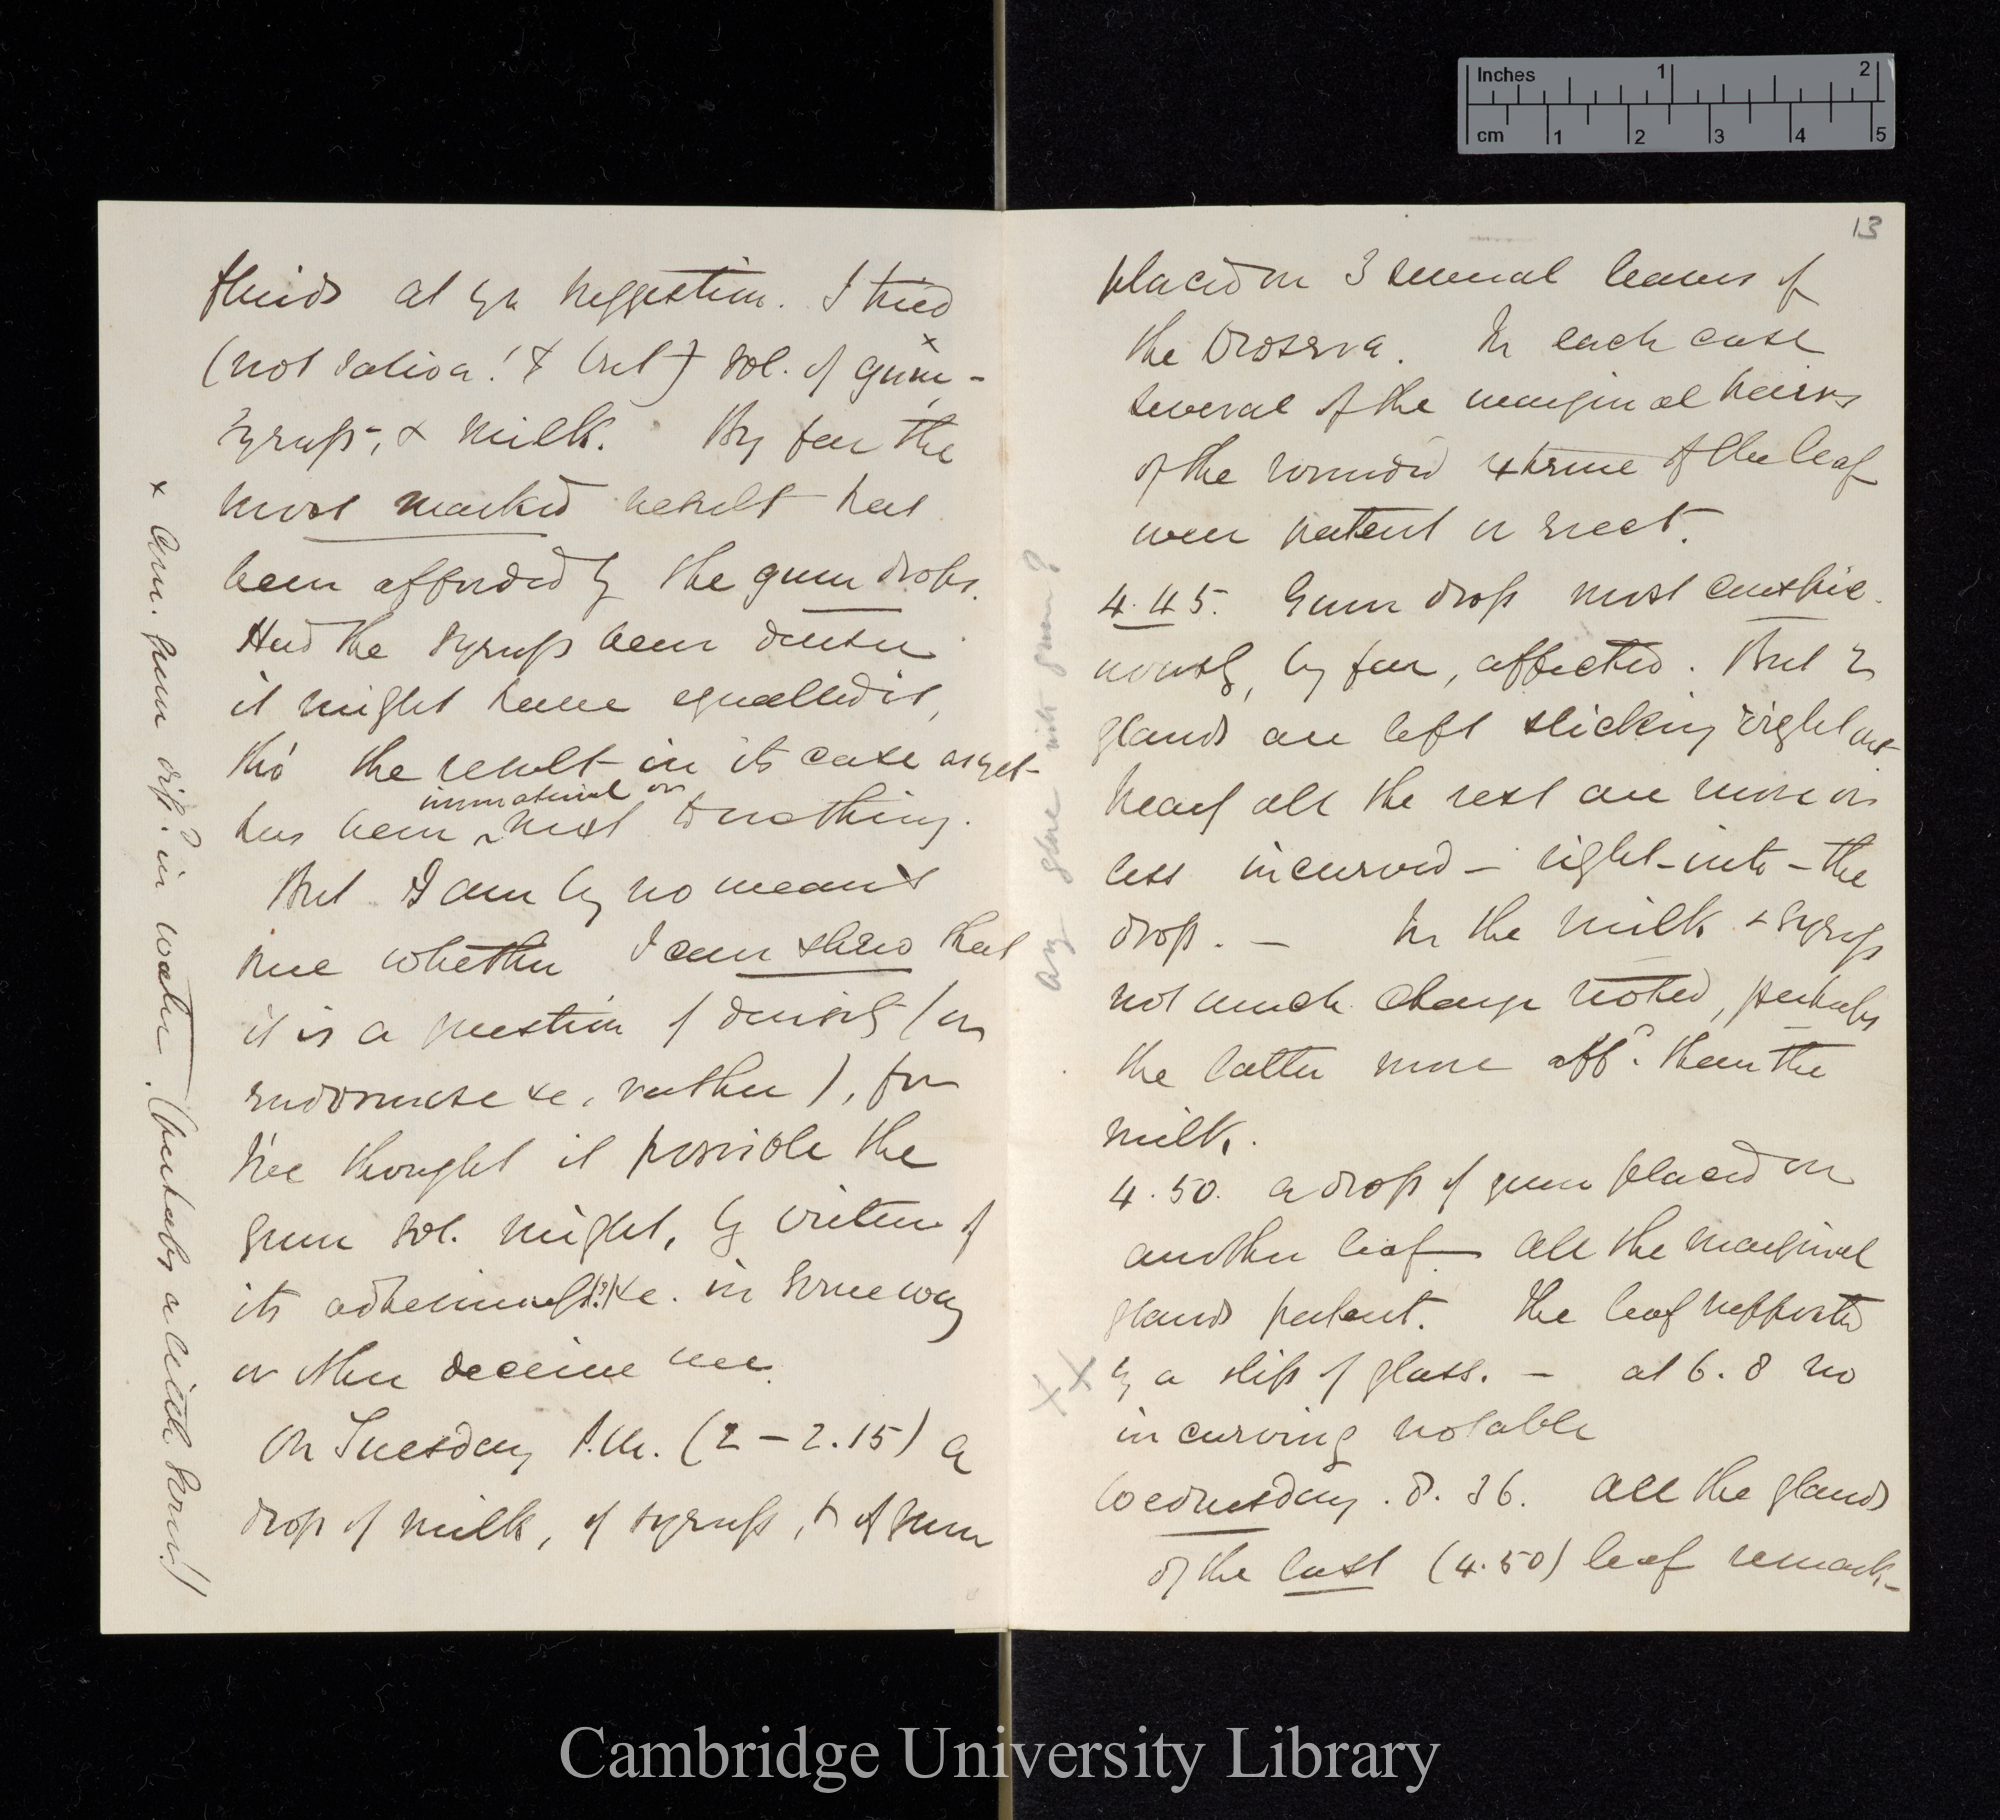 fluids at yr suggestion. I tried
(not saliva! & but) sol. of gum x –
syrup, & milk. By far the
most marked result has
been afforded by the gum drops.
Had the syrup been denser
it might have equalled it,
tho' the result in its case as yet
has been immaterial or next to nothing.
But I am by no means
sure whether I can shew that
it is a question of density (or
endosmose &c, rather), for
I've thought it possible the
gum sol. might, by virtue of
its adhesiveness (?) &c. in some way
or other deceive me.
On Tuesday P.M. (2 – 2.15) a
drop of milk, of syrup, & of gum
x Com. gum diss? in water. (perhaps a little ferm!)
13
placed on 3 several leaves of
the Drosera. In each case
several of the marginal hairs
of the rounded extreme of the leaf
were patent or erect.
4.45. Gum drop most conspic-
uously, by far, affected. But 2
glands are left sticking right out
nearly all the rest are more or
less incurved – right – into – the
drop. – In the milk & syrup
not much change noted, perhaps
the latter more affd. than the
milk.
4.50. a drop of gum placed on
another leaf – all the marginal
glands patent. The leaf supported
by a slip of glass. – at 6.8 no
incurving notable
Wednesday. 8.36. All the glands
of the last (4.50) leaf remark-
any glue into gum?
x x
Inches 1 2
cm 1 2 3 4 5
Cambridge University Library